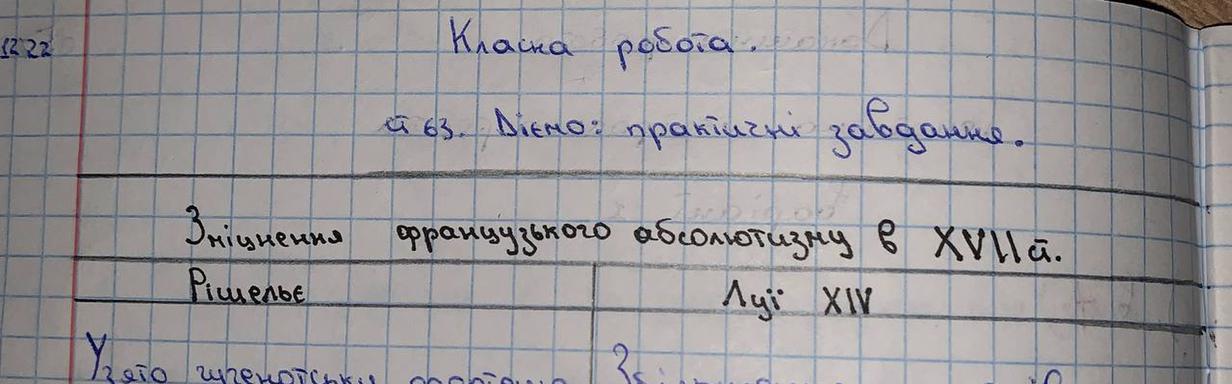 1222
Класна робота.
ст 63. Діємо: практичні завдання.
Зміцнення французького абсолютизму в XVII ст.
Рішельє Луї XIV
Узято гугенотську